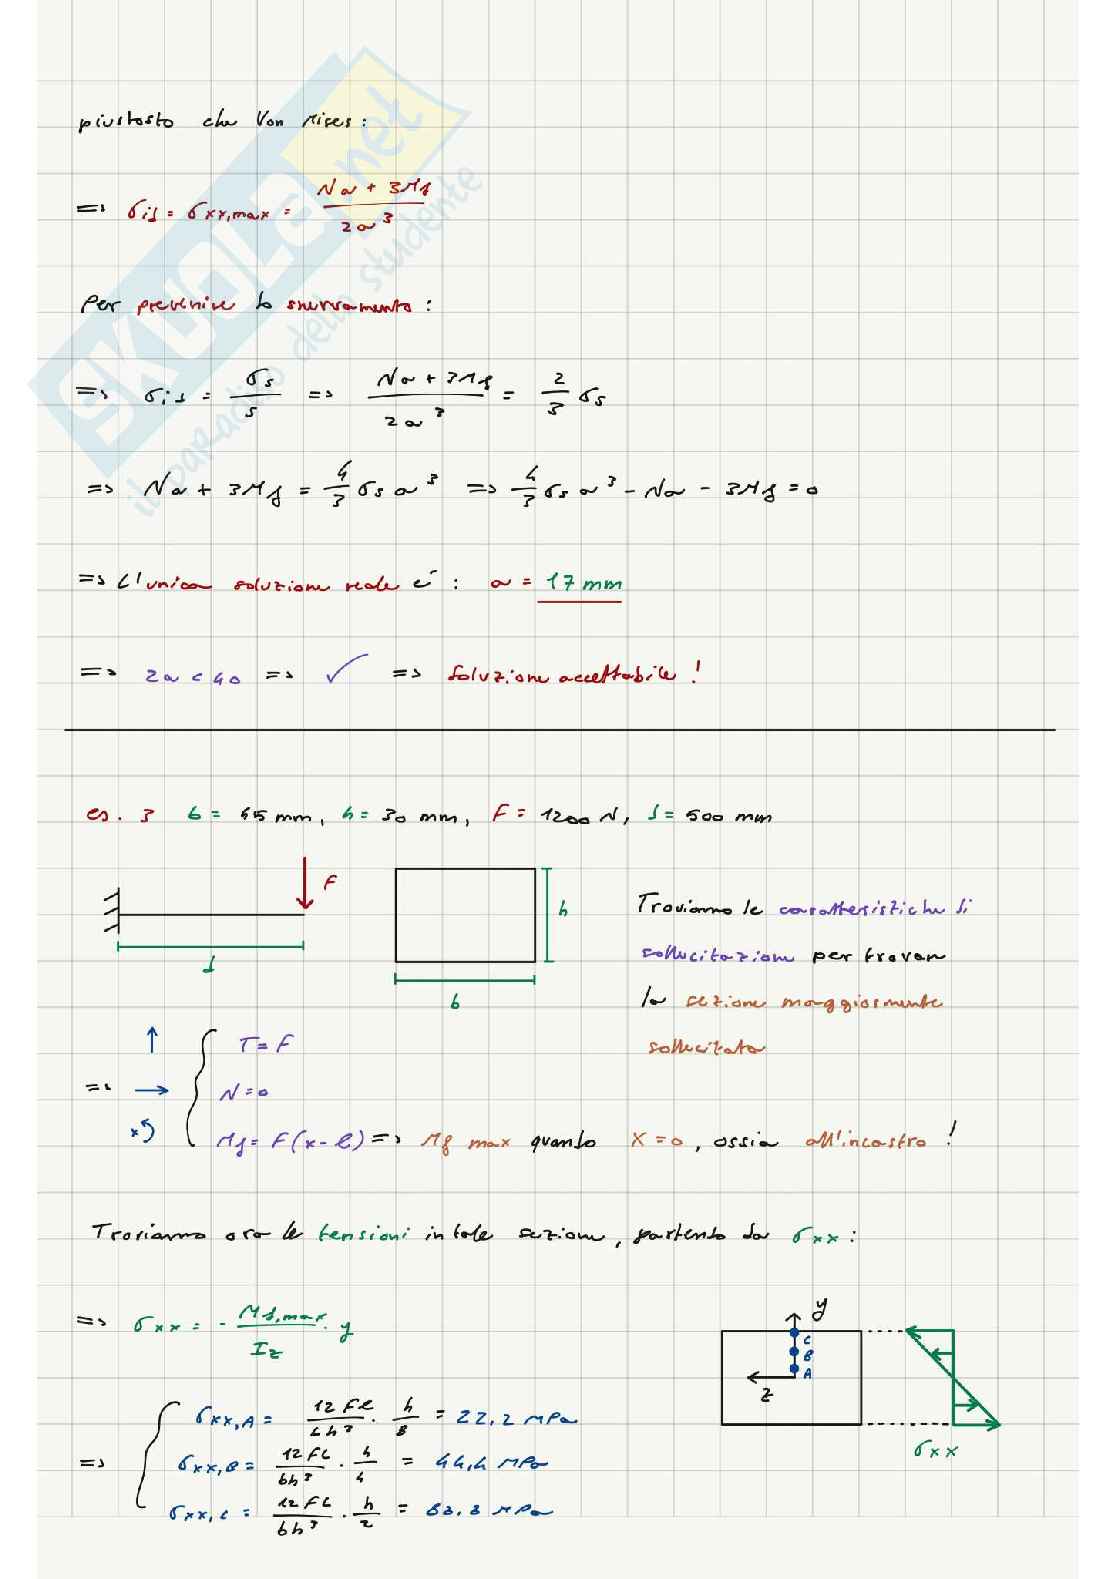 piuttosto che Von Mises :
=> σid = σxx,max = (Na + 3Mf) / 2a³
Per prevenire lo snervamento :
=> σid = σs / s => (Na + 3Mf) / 2a³ = 2/3 σs
=> Na + 3Mf = 4/3 σs a³ => 4/3 σs a³ - Na - 3Mf = 0
=> L'unica soluzione reale è : a = 17 mm
=> 2a < 40 => ✓ => Soluzione accettabile !
es. 3 b = 45 mm, h = 30 mm, F = 1200 N, d = 500 mm
F
h
d
b
Troviamo le caratteristiche di
sollecitazione per trovare
la sezione maggiormente
sollecitata
=> ↑ T = F
→ N = 0
x Mf = F(x - l) => Mf max quando x = 0, ossia all'incastro !
Troviamo ora le tensioni in tale sezione, partendo da σxx :
=> σxx = - Mf,max / Iz · y
y
C
B
A
z
σxx
=> σxx,A = 12 Fl / bh³ · h/8 = 22,2 MPa
σxx,B = 12 Fl / bh³ · h/4 = 44,4 MPa
σxx,C = 12 Fl / bh³ · h/2 = 88,8 MPa
SKUOLA.net
il paradiso dello studente